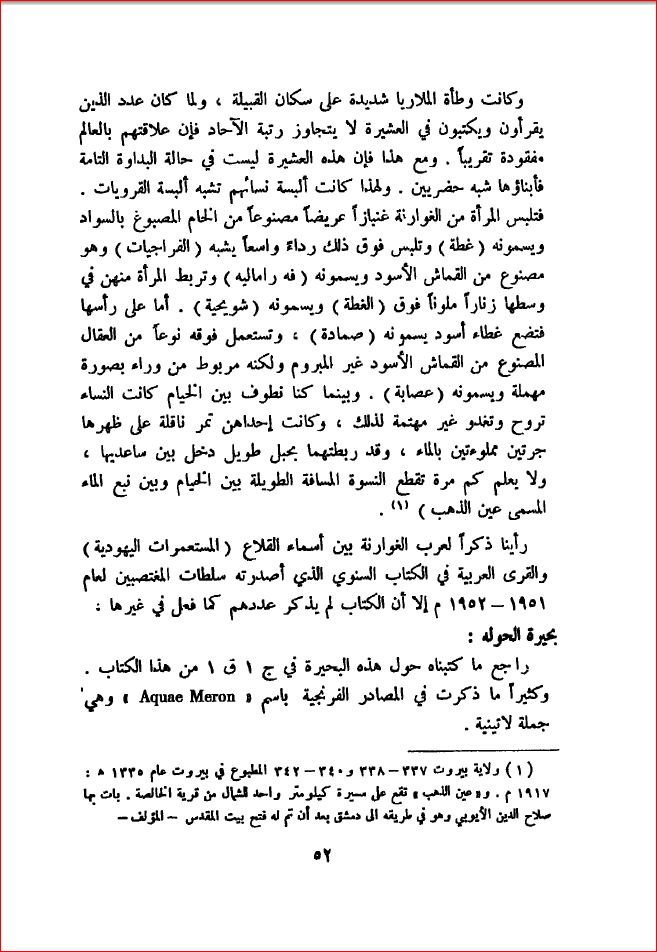 وكانت وطأة الملاريا شديدة على سكان القبيلة ، ولما كان عدد الذين
يقرأون ويكتبون في العشيرة لا يتجاوز رتبة الآحاد فإن علاقتهم بالعالم
مفقودة تقريباً . ومع هذا فإن هذه العشيرة ليست في حالة البداوة التامة
فأبناؤها شبه حضريين . ولهذا كانت ألبسة نسائهم تشبه ألبسة القرويات .
فتلبس المرأة من الغوارنة غنيازاً عريضاً مصنوعاً من الخام المصبوغ بالسواد
ويسمونه ( غطة ) وتلبس فوق ذلك رداءً واسعاً يشبه ( الفراجيات ) وهو
مصنوع من القماش الأسود ويسمونه ( فه راماليه ) وتربط المرأة منهن في
وسطها زناراً ملوناً فوق ( الغطة ) ويسمونه ( شويحية ) . أما على رأسها
فتضع غطاء أسود يسمونه ( صمادة ) ، وتستعمل فوقه نوعاً من العقال
المصنوع من القماش الأسود غير المبروم ولكنه مربوط من وراء بصورة
مهملة ويسمونه ( عصابة ) . وبينما كنا نطوف بين الخيام كانت النساء
تروح وتغدو غير مهتمة لذلك ، وكانت إحداهن تمر ناقلة على ظهرها
جرتين مملوءتين بالماء ، وقد ربطتهما بحبل طويل دخل بين ساعديها ،
ولا يعلم كم مرة تقطع النسوة المسافة الطويلة بين الخيام وبين نبع الماء
المسمى عين الذهب ) (١) .
رأينا ذكراً لعرب الغوارنة بين أسماء القلاع ( المستعمرات اليهودية )
والقرى العربية في الكتاب السنوي الذي أصدرته سلطات المغتصبين لعام
١٩٥١ – ١٩٥٢ م إلا أن الكتاب لم يذكر عددهم كما فعل في غيرها .
بحيرة الحوله :
راجع ما كتبناه حول هذه البحيرة في ج ١ ق ١ من هذا الكتاب .
وكثيراً ما ذكرت في المصادر الفرنجية باسم « Aquae Meron » وهي
جملة لاتينية .
(١) ولاية بيروت ٣٣٧ – ٣٣٨ و ٣٤٠ – ٣٤٢ المطبوع في بيروت عام ١٣٣٥ ه :
١٩١٧ م . و« عين الذهب » تقع على مسيرة كيلومتر واحد للشمال من قرية الخالصة . بات بها
صلاح الدين الأيوبي وهو في طريقه الى دمشق بعد أن تم له فتح بيت المقدس – المؤلف –
٥٢